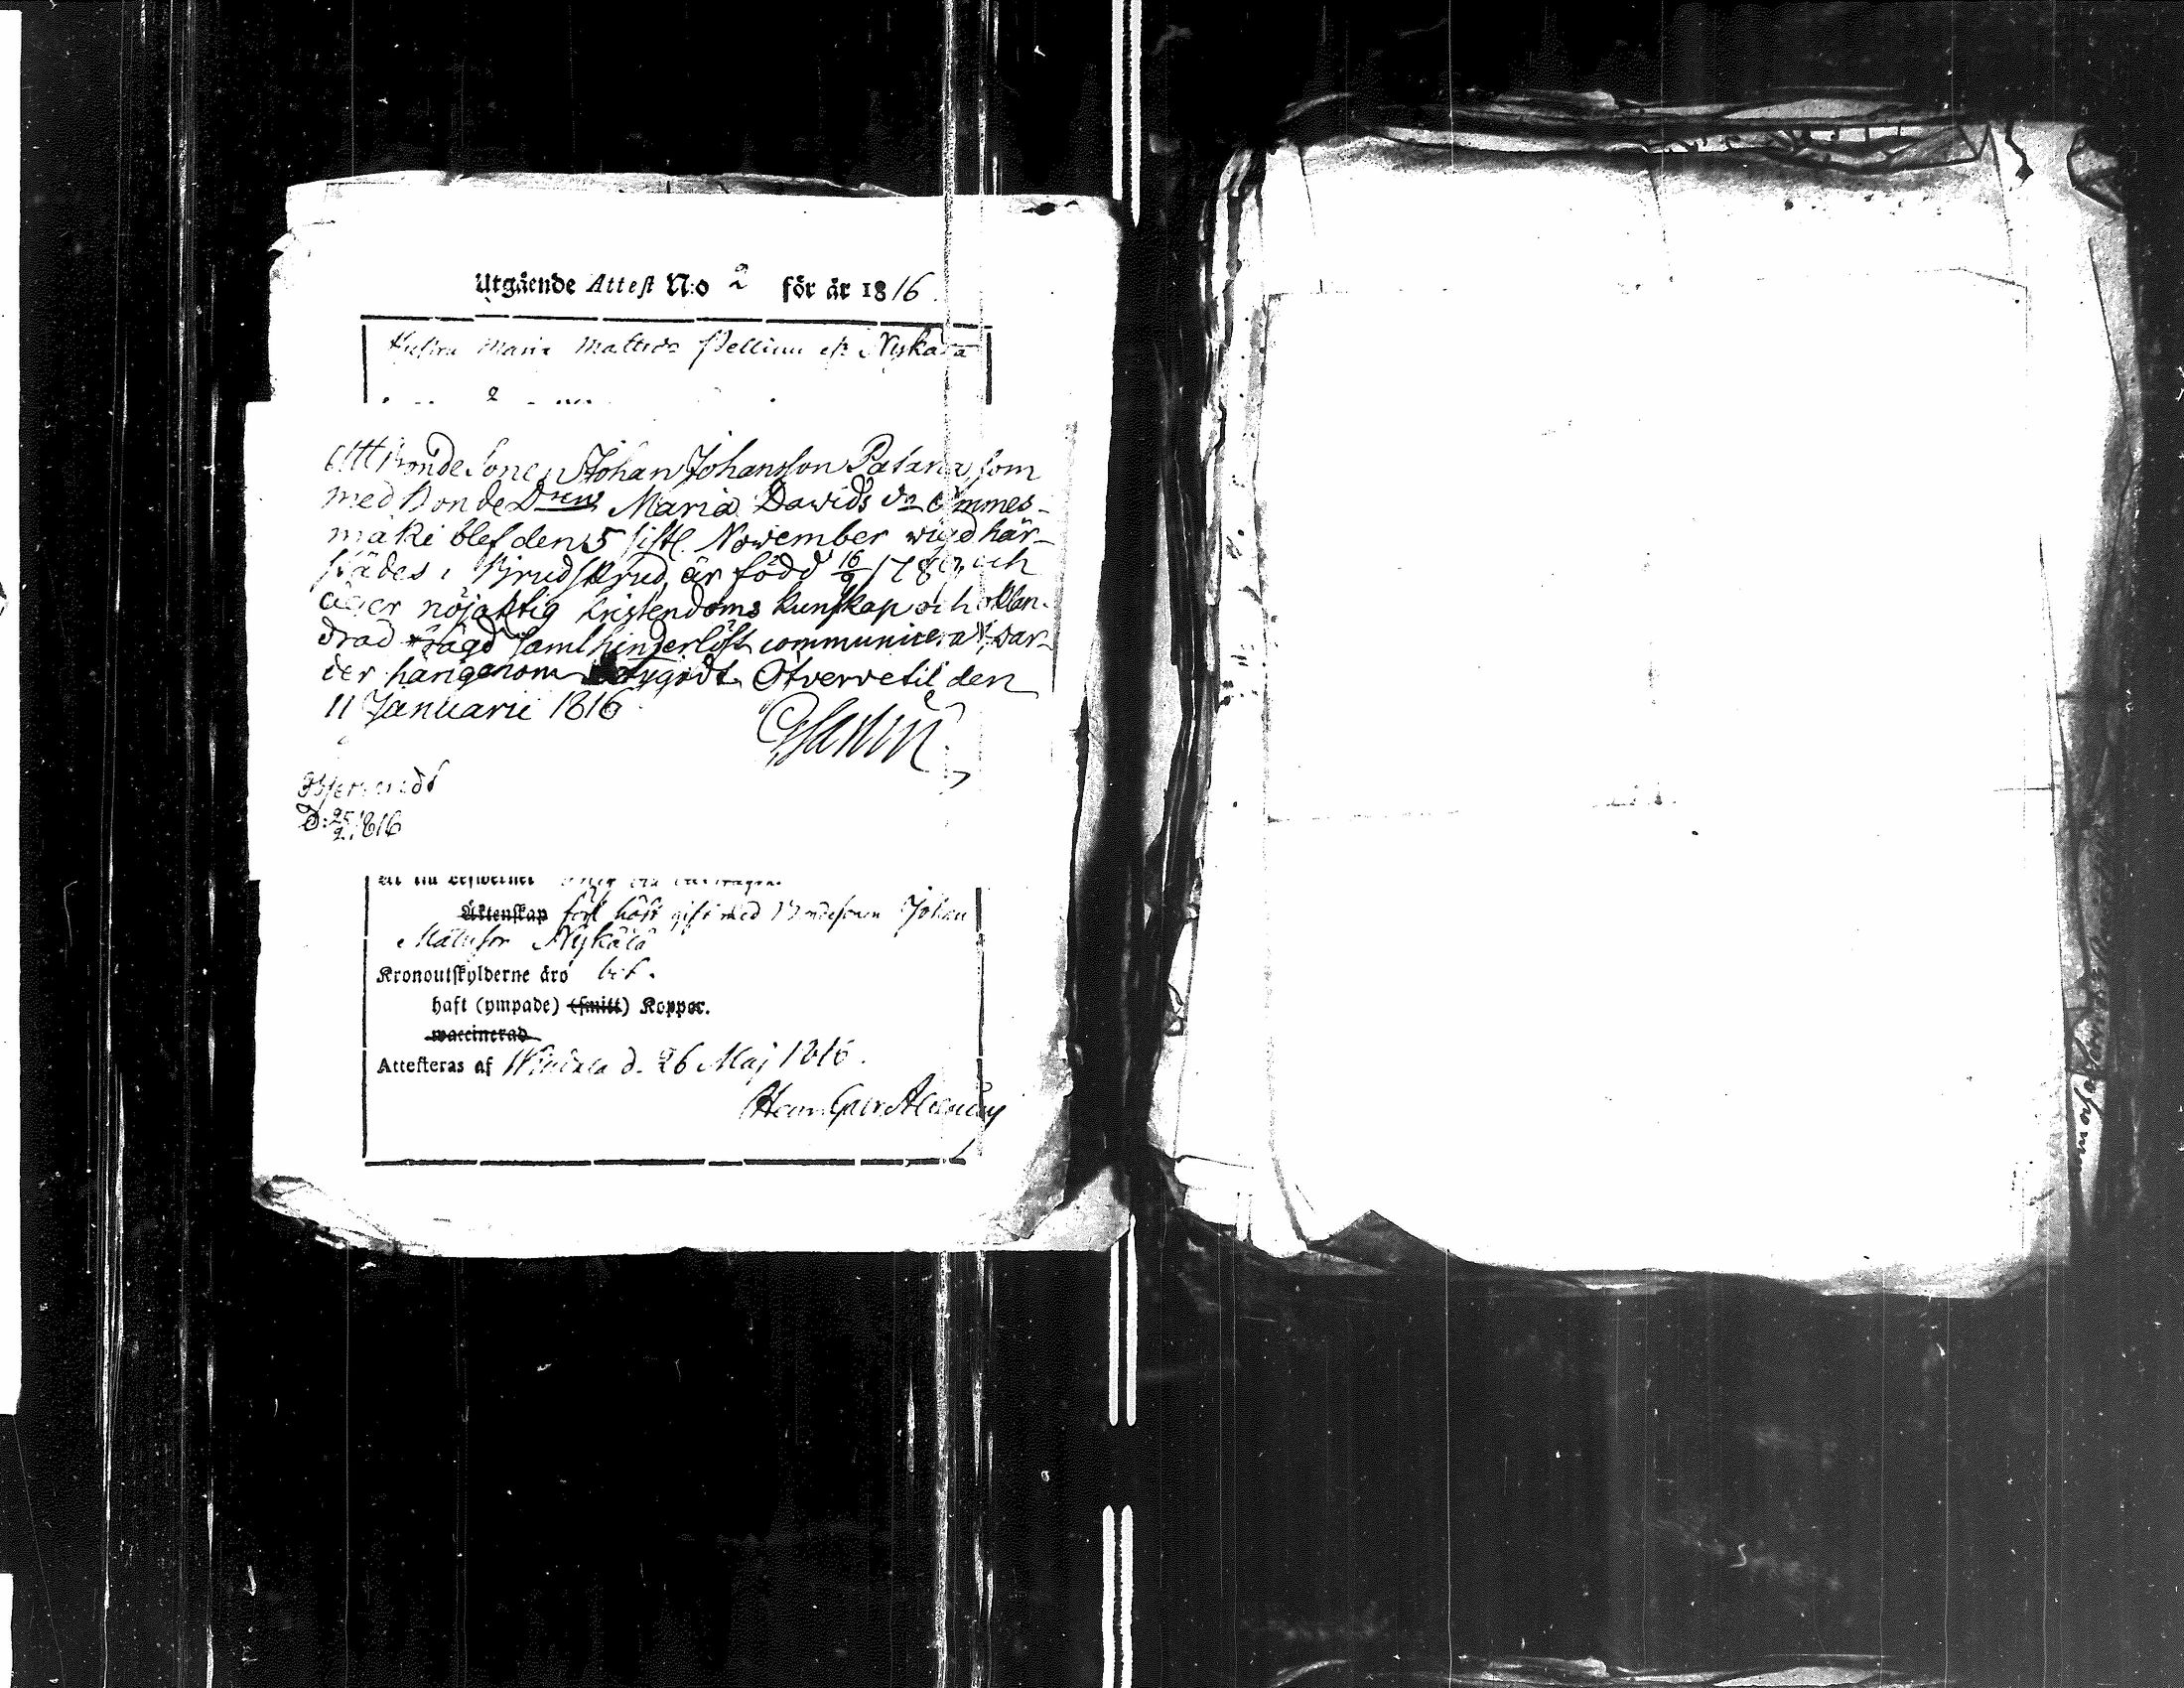 Utgående Attest N:o 2 för år 1816
Hustru Maria Nykälä
Att BondeSonen Johan Johansson Patana, som
med BondeDren Maria Davids dr Emmes-
mäki blef den 5 sistl. November wigd här-
städes i Brudskrud, är född 16/9 och
äger nöjaktig kristendoms kunskap och oklan-
drad frägd samt hinderlöst communicerat, war-
der härigenom betygadt Ötverretil den
11 Januarii 1816
D: 25/2 1816
Äktenskap förl. höst gift med Bondesonen Johan
Nykälä
Kronoutskylderne äro bet.
haft (ympade) (smitt) Koppor.
waccinerad
Attesteras af d. 26 Maj 1816.